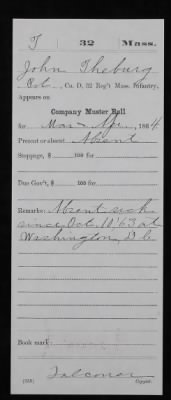 T 32 Mass.
John Theburg
Pvt., Co. D, 32 Reg't Mass. Infantry.
Appears on
Company Muster Roll
for Mar & Apr, 1864
Present or absent Absent
Stoppage, $ 100 for
Due Gov't, $ 100 for
Remarks: Absent sick
since Oct. 10 '63 at
Washington, D.C.
Book mark:
(358) Falconer
Copyist.